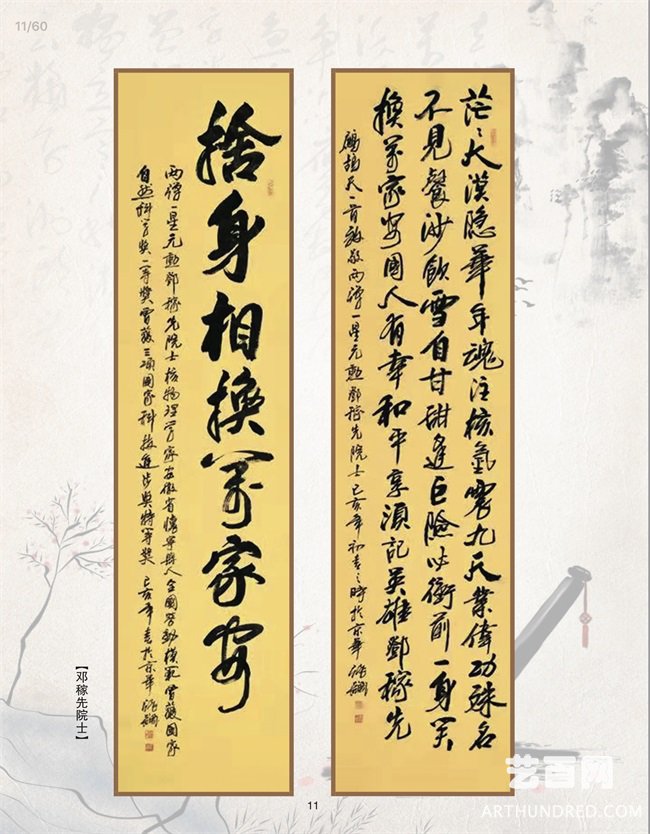 11/60
茫々大漠隐華年魂注核氢震九天業偉功殊名
不見餐沙飲雪自甘甜逢巨險必衝前一身笑
換萬家安國人有幸和平享須記英雄鄧稼先
鷓鴣天一首致敬两弹一星元勳鄧稼先院士己亥年初春之時於京華
捨身相換萬家安
两弹一星元勳鄧稼先院士核物理學家安徽省懷寧縣人全國勞動模範曾獲國家
自然科學獎一等獎曾獲三項國家科技進步獎特等獎己亥年春於京華
【邓稼先院士】
11
艺百网
ARTHUNDRED.COM